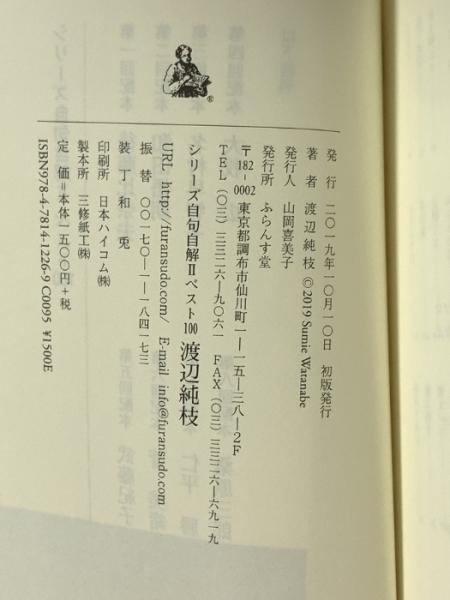 シリーズ自句自解Ⅱベスト100 渡辺純枝
発行 二〇一九年一〇月一〇日 初版発行
著者 渡辺純枝 ©2019 Sumie Watanabe
発行人 山岡喜美子
発行所 ふらんす堂
〒182-0002 東京都調布市仙川町一―一五―三八―2F
TEL(〇三)三三二六―九〇六一 FAX(〇三)三三二六―六九一九
URL http://furansudo.com/ E-mail info@furansudo.com
振替 〇〇一七〇―一―一八四一七三
装丁 和兎
印刷所 日本ハイコム㈱
製本所 三修紙工㈱
定価=本体一五〇〇円+税
ISBN978-4-7814-1226-9 C0095 ¥1500E
®